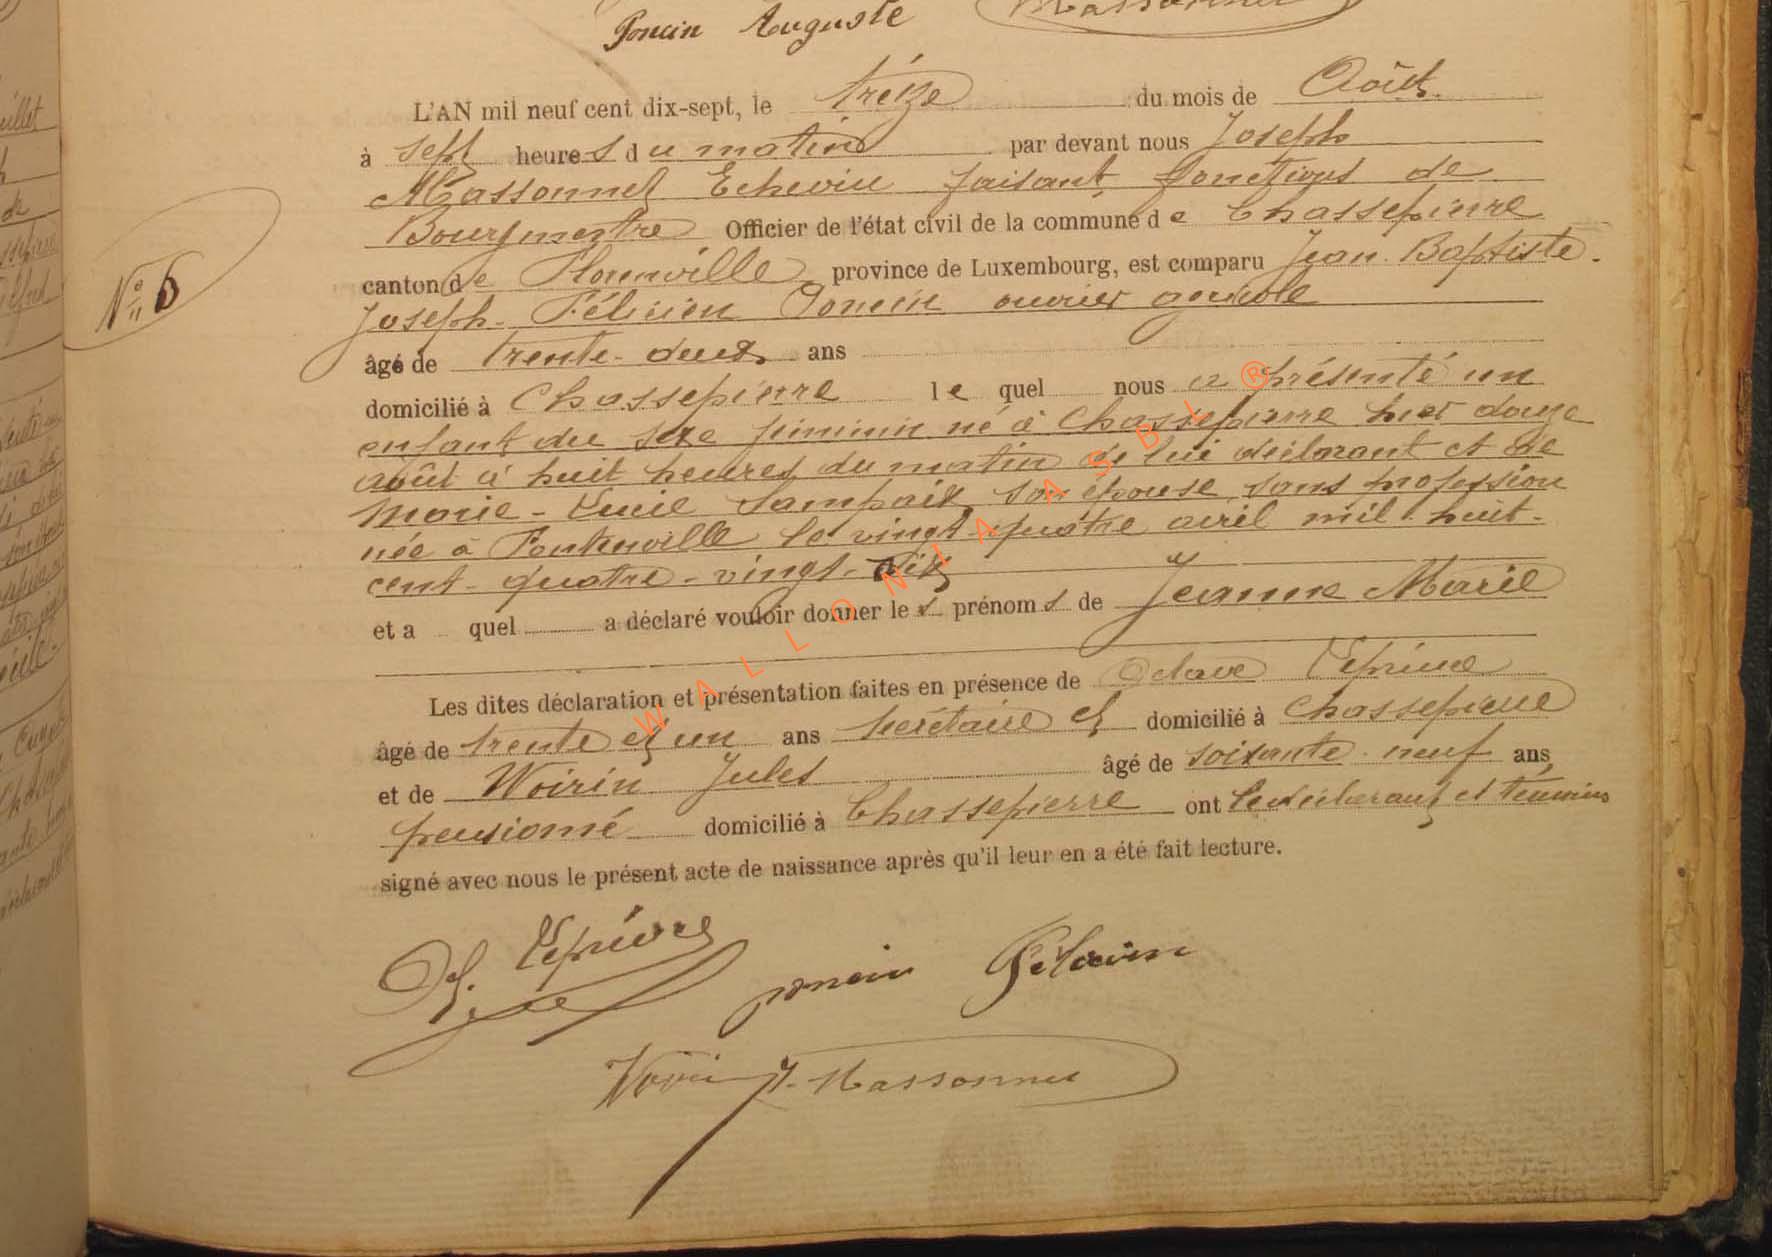 Poncin Auguste
L'AN mil neuf cent dix-sept, le treize du mois de Août
à sept heures du matin par devant nous Joseph
Massonnet Echevin faisant fonctions de
Bourgmestre Officier de l'état civil de la commune de Chassepierre
canton de Florenville province de Luxembourg, est comparu Jean Baptiste
N° 6
Joseph Félicien Poncin ouvrier agricole
âgé de trente-deux ans
domicilié à Chassepierre lequel nous a présenté un
enfant du sexe féminin né à Chassepierre hier douze
août à huit heures du matin de lui déclarant et de
Marie-Lucie Lampaix son épouse sans profession
née à Fontenoille le vingt-quatre avril mil huit-
cent-quatre-vingt-dix
et a quel a déclaré vouloir donner les prénoms de Jeanne Marie
Les dites déclaration et présentation faites en présence de Octave Leprince
âgé de trente et un ans secrétaire et domicilié à Chassepierre
et de Woirin Jules âgé de soixante neuf ans
pensionné domicilié à Chassepierre ont le déclarant et témoins
signé avec nous le présent acte de naissance après qu'il leur en a été fait lecture.
poncin Félicien
Woirin J. Massonnet
WALLONIA ASBL ®